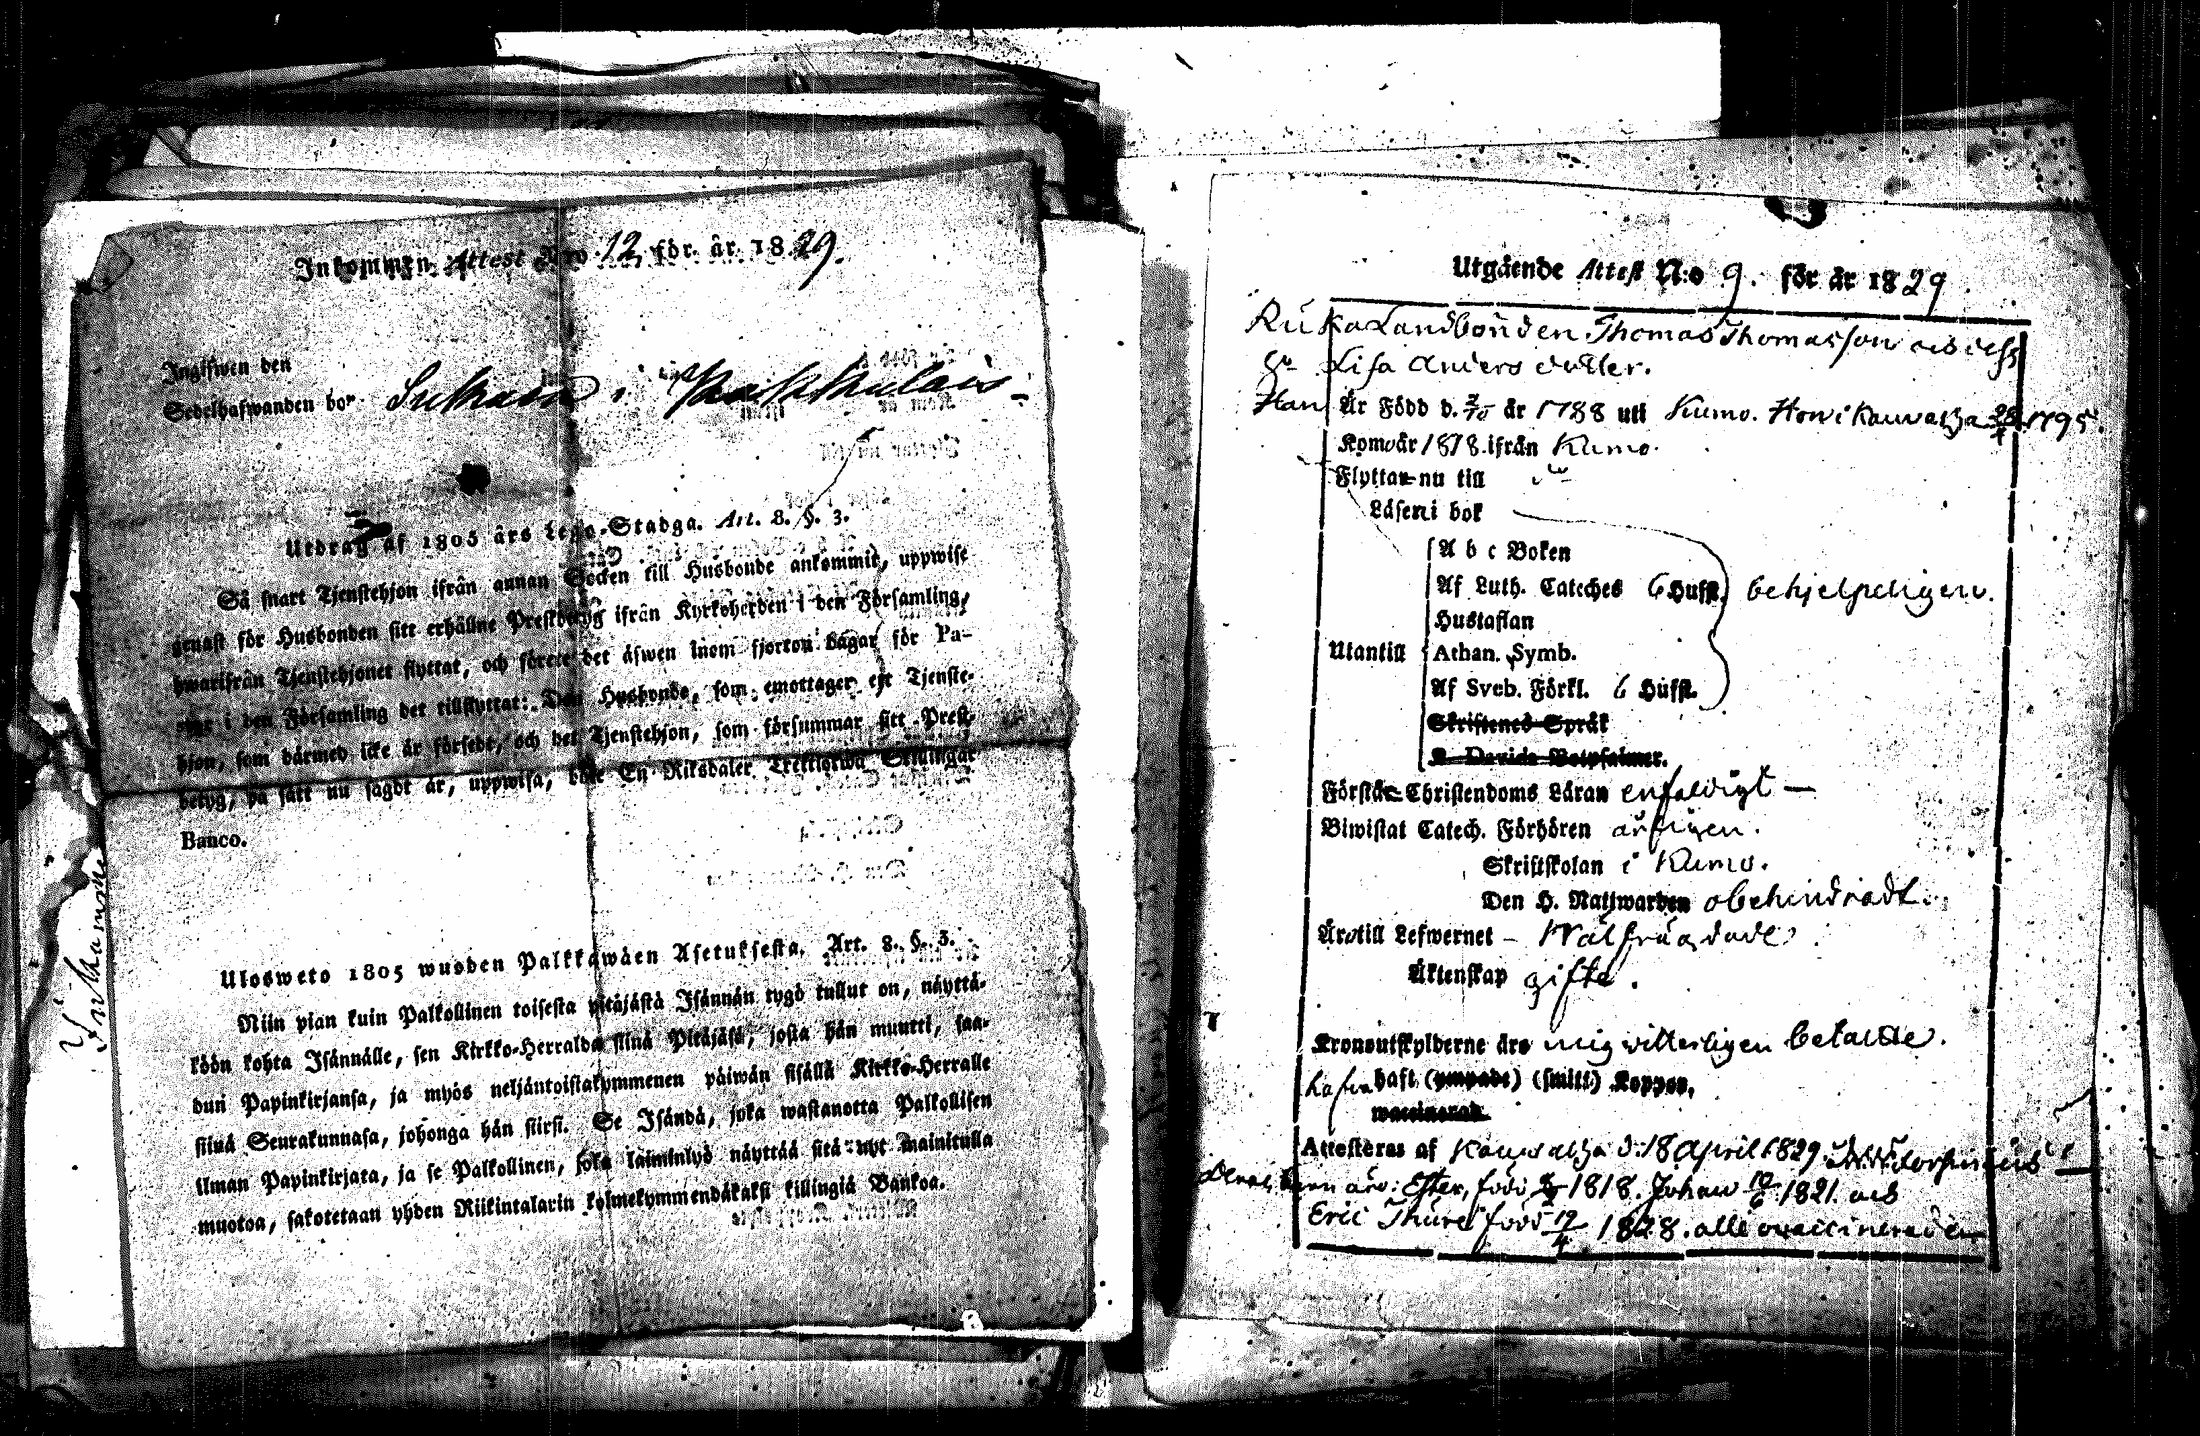 Inkommen Attest N:o 12 för år 1829.
Ingifwen den
Sedelhafwanden bor
Utdrag af 1805 års Lego-Stadga. Art. 8. §. 3.
Så snart Tjenstehjon ifrån annan Socken till Husbonde ankommit, uppwise
genast för Husbonden sitt erhållne Prestbetyg ifrån Kyrkoherden i den Församling,
hwarifrån Tjenstehjonet flyttat, och förete det äfwen inom fjorton dagar för Pa-
stor i den Församling det tillflyttat: Den Husbonde, som emottager ett Tjenste-
hjon, som dårmed icke är försedt, och det Tjenstehjon, som försummar sitt Prest-
betyg, på sätt nu sagdt är, uppwisa, böte En Riksdaler Trettiotwå Skillingar
Banco.
Ulosweto 1805 wuoden Palkkawåen Asetuksesta. Art. 8. §. 3.
Niin pian kuin Palkollinen toisesta pitäjästä Isännän tygö tullut on, näyttä-
köön kohta Isännälle, sen Kirkko-Herralda siinä Pitäjäsä, josta hän muutti, saa-
dun Papinkirjansa, ja myös neljäntoistakymmenen päiwän sisällä Kirkko-Herralle
siinä Seurakunnasa, johonga hän siirsi. Se Isändä, joka wastanotta Palkollisen
ilman Papinkirjata, ja se Palkollinen, joka laiminlyö näyttää sitä nyt mainitulla
muotoa, sakotetaan yhden Riikintalarin kolmekymmendäkaksi killingiä Bankoa.
Utgående Attest N:o 9. för år 1829
Landbonden Thomas Thomasson och dess
Lisa Anders dotter.
Han Är Född d. 2/10 år 1788 uti Kumo. Hon i Kauvatza 28/4 1795.
Kom år 1818 ifrån Kumo.
Flyttar nu till do
Läsen i bok
A b c Boken
Af Luth. Cateches 6 Hufst. behjelpeligen.
Hustaflan
Utantill Athan. Symb.
Af Sveb. Förkl. 6 Hufst.
Skriftenes Språk
Davids Botpsalmer.
Förstå Christendoms Läran enfaldigt —
Biwistat Catech. Förhören årligen.
Skriftskolan i Kumo.
Den H. Nattwarden obehindradt.
Äro till Lefwernet - Wälfrägdade
Äktenskap gifte.
Kronoutskylderne äro mig vitterligen betalde.
hafva haft (ympade) (smitt) Koppor,
vaccinerad.
Attesteras af Kauvatza d. 18 April 1829.
Deras barn äro: Ester, född 1818. Johan 12/6 1821. och
Eric Thure född 12/4 1828. alle ovaccinerade